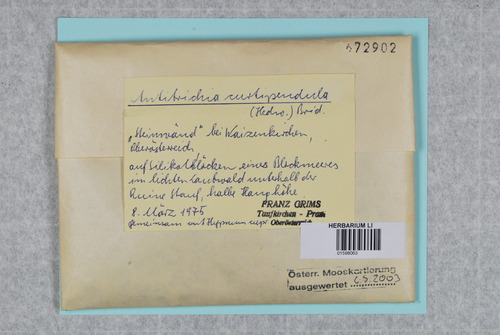 672902
Antitrichia curtipendula
(Hedw.) Brid.
"Steinwänd" bei Waizenkirchen,
Oberösterreich,
auf Silikatblöcken eines Blockmeeres
im lichten Laubwald unterhalb der
Ruine Stauf, halbe Hanghöhe
8. März 1975
gemeinsam mit Hypnum cupr.
FRANZ GRIMS
Taufkirchen - Pram
Oberösterreich
HERBARIUM LI
01598063
Österr. Mooskartierung
ausgewertet 6.5.2003